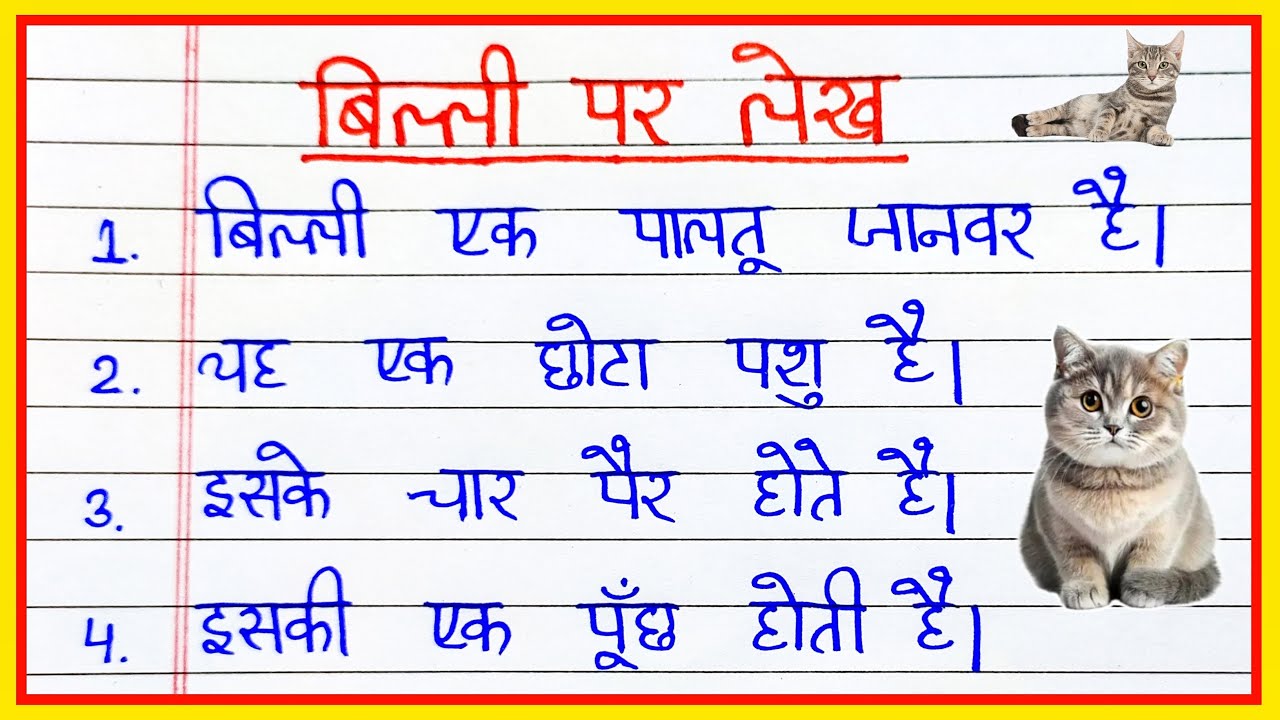 बिल्ली पर लेख
1. बिल्ली एक पालतू जानवर है।
2. यह एक छोटा पशु है।
3. इसके चार पैर होते है।
4. इसकी एक पूँछ होती है।